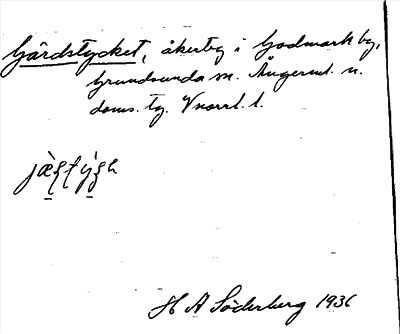 Gärdstycket, åkertg i Godmark by,
Grundsunda sn. Ångerml. n.
doms. tg. Vnorrl. l.
H A Söderberg 1936